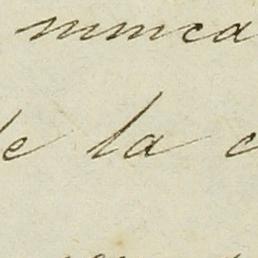 nunca
de la c